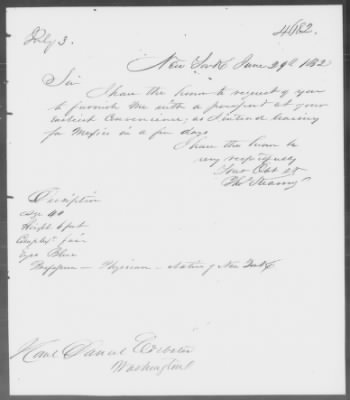 4682.
July 3.
New York June 29th 1852
Sir
I have the honor to request of you
to furnish me with a passport at your
earliest convenience; as I intend leaving
for Mexico in a few days
I have the honor to
very respectfully
Your Obt St
Description
Age 40
Height 6 feet
Complexn fair
Eyes Blue
Profession — Physician — Native of New York
Honl Daniel Webster
Washington